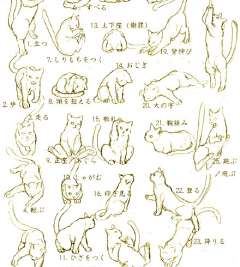 6. すべる
13. 土下座（謝罪）
1. 立つ
7. しりもちをつく
19. 背伸び
14. おじぎ
2. 歩く
8. 頭を抱える
20. 大の字
3. 走る
15. 敬礼
21. 腕組み
9. 正座／あぐら
25. 跳ぶ
／飛ぶ
10. しゃがむ
16. 仰ぎ見る
22. 登る
4. 転ぶ
23. 降りる
11. ひざをつく